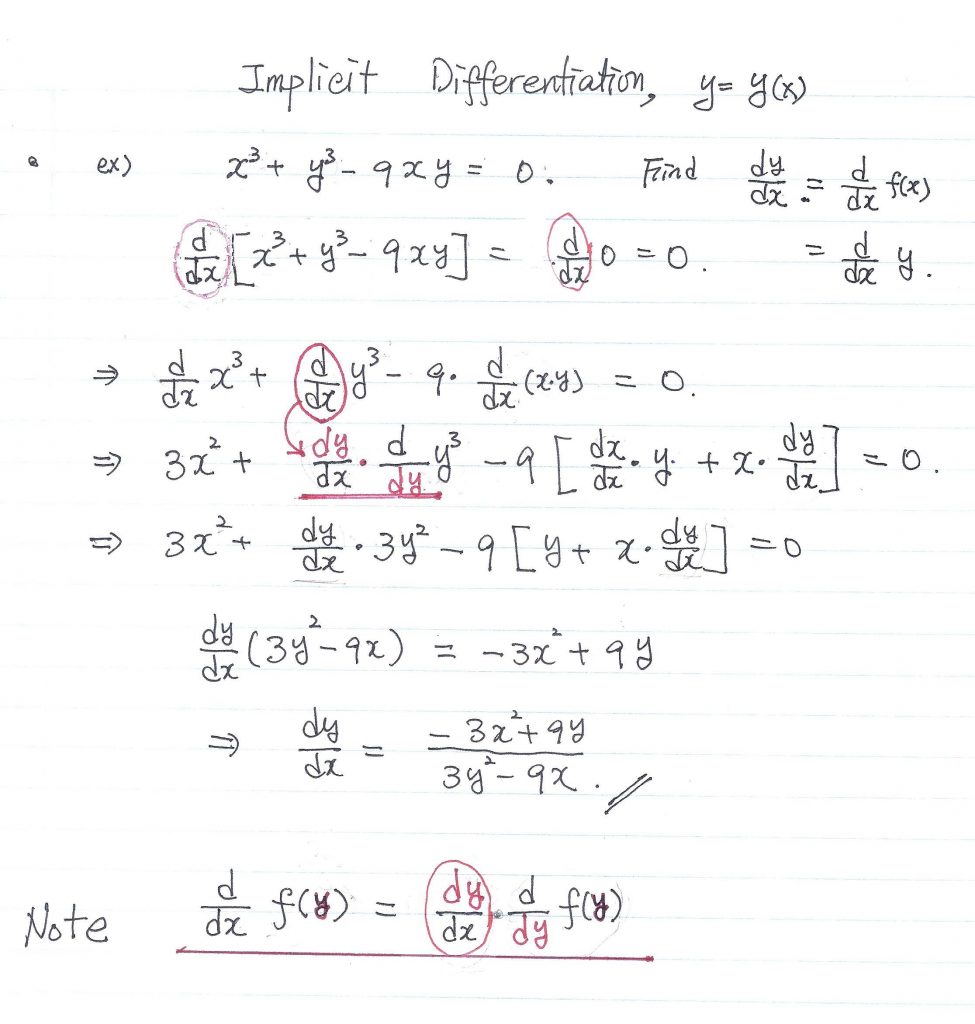 Implicit Differentiation, y = y(x)
ex) x³ + y³ - 9xy = 0. Find dy/dx = d/dx f(x)
d/dx [x³ + y³ - 9xy] = d/dx 0 = 0. = d/dx y.
⇒ d/dx x³ + d/dx y³ - 9· d/dx (x·y) = 0.
⇒ 3x² + dy/dx · d/dy y³ - 9 [dx/dx · y + x · dy/dx] = 0.
⇒ 3x² + dy/dx · 3y² - 9 [y + x · dy/dx] = 0
dy/dx (3y² - 9x) = -3x² + 9y
⇒ dy/dx = (-3x² + 9y)/(3y² - 9x).
Note d/dx f(y) = dy/dx · d/dy f(y)